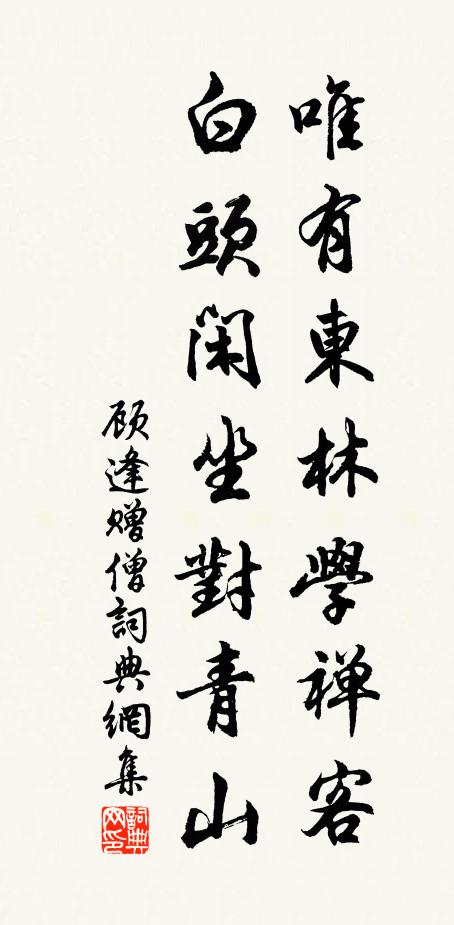 唯有東林學禅客
白頭閑坐對青山
顾逢赠僧詞典網集
詞典网印